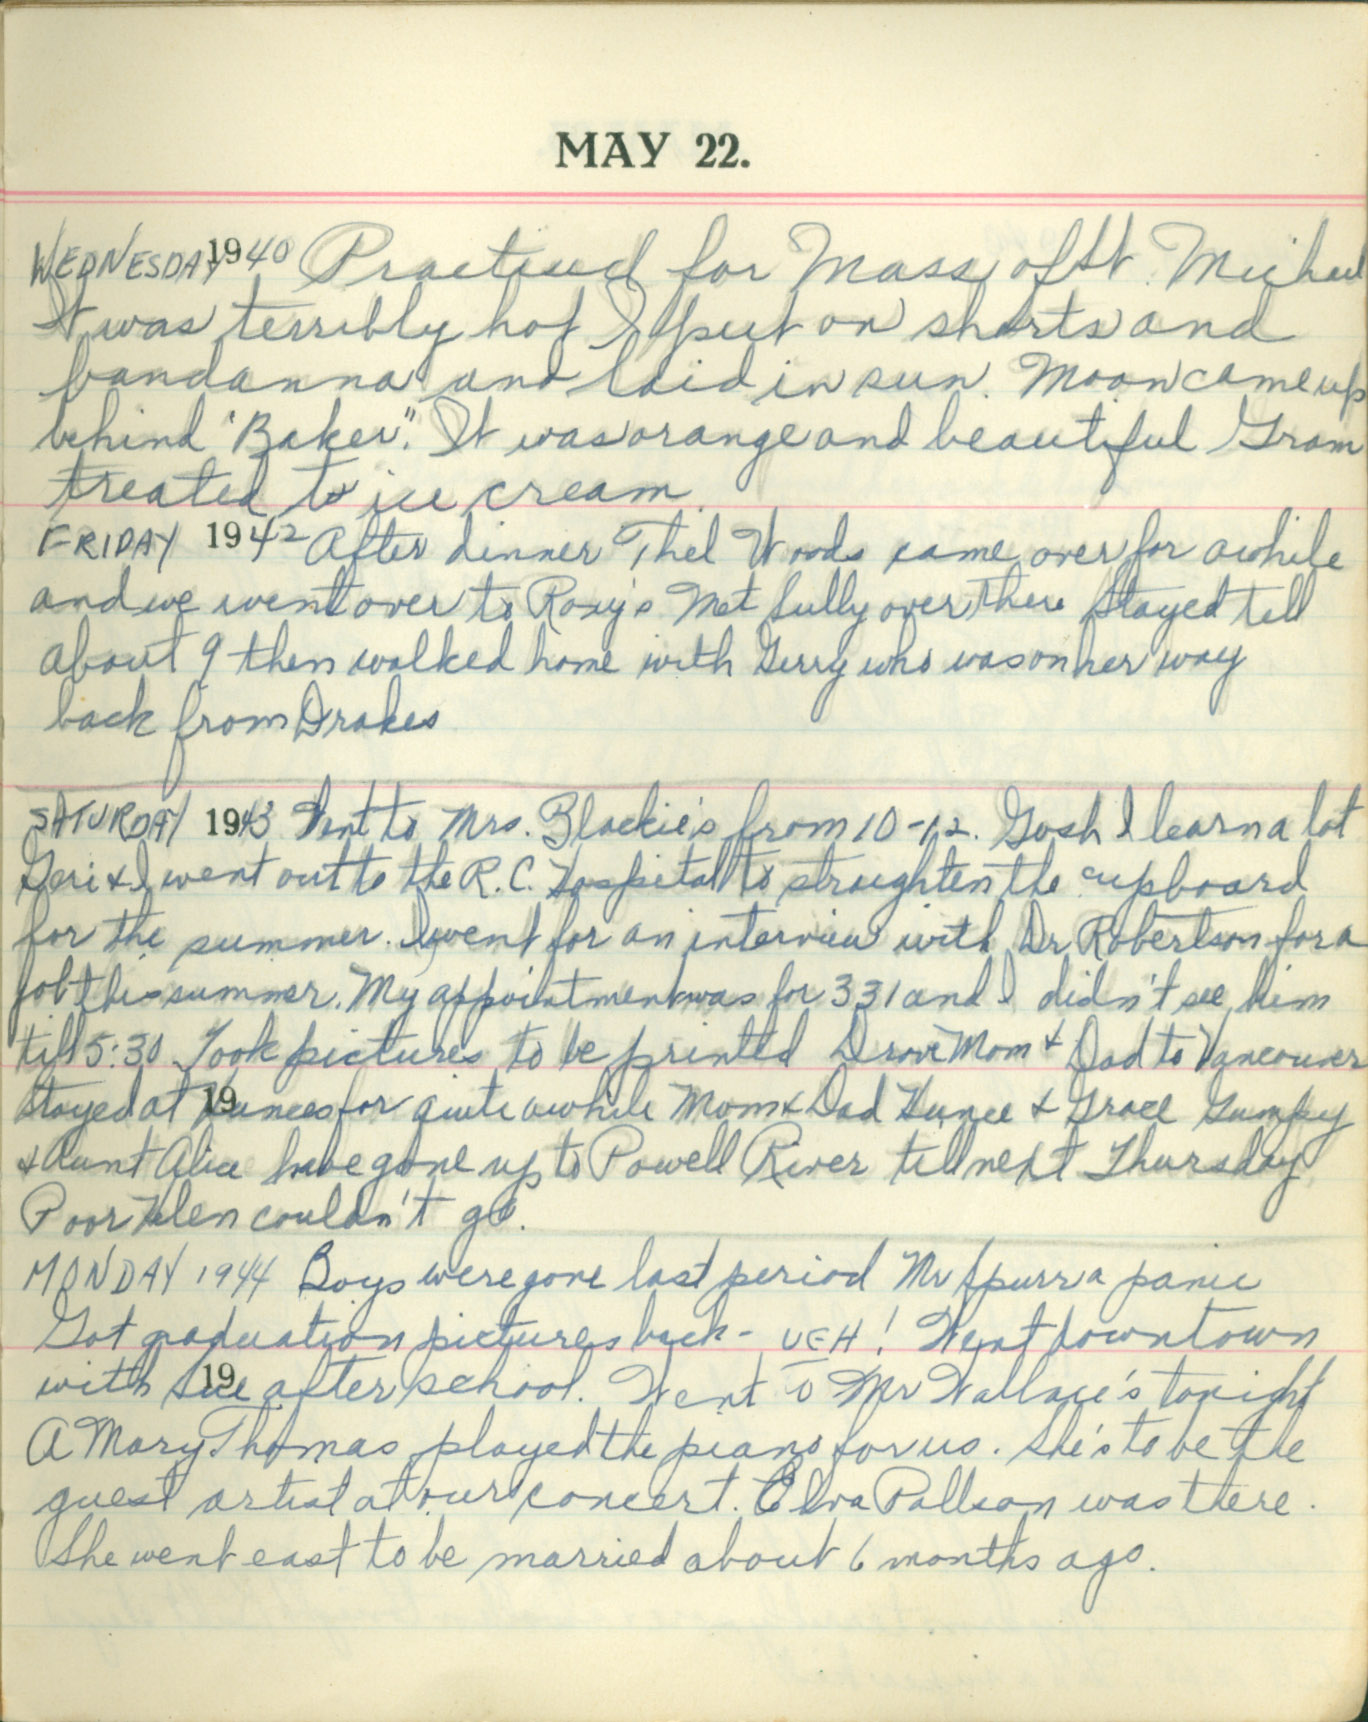 MAY 22.
WEDNESDAY 1940 Practised for Mass of St. Michael
It was terribly hot I put on shorts and
bandanna and laid in sun. Moon came up
behind "Baker". It was orange and beautiful Gram
treated to ice cream
FRIDAY 1942 After dinner Thel Woods came over for awhile
and we went over to Roxy's Met fully over there Stayed till
about 9 then walked home with Gerry who was on her way
back from Drakes
SATURDAY 1943 Went to Mrs. Blackie's from 10-12. Gosh I learn a lot
Geri & I went out to the R.C. Hospital to straighten the cupboard
for the summer. I went for an interview with Dr Robertson for a
job this summer. My appointment was for 331 and I didn't see him
till 5:30 Took pictures to be printed Drove Mom & Dad to Vancouver
19
Stayed at for quite awhile Mom & Dad & Grace Gumpy
& Aunt Alice have gone up to Powell River till next Thursday
Poor Helen couldn't go.
MONDAY 1944 Boys were gone last period Mr Spurr a panic
Got graduation pictures back - UEH! Went downtown
19
with Sue after school. Went to Mr Wallace's tonight
A Mary Thomas played the piano for us. She's to be the
guest artist at our concert. Elva Pallson was there.
She went east to be married about 6 months ago.